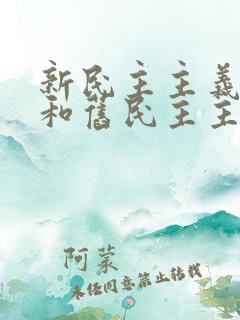 新民主主義
和舊民主主
阿蒙
未经同意禁止转载